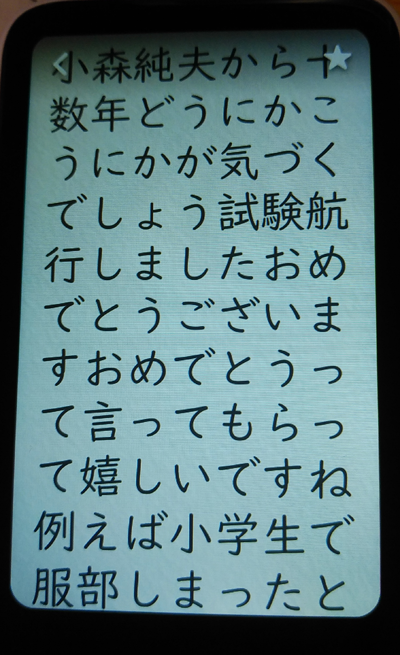 小森純夫から十
数年どうにかこ
うにかが気づく
でしょう試験航
行しましたおめ
でとうございま
すおめでとうっ
て言ってもらっ
て嬉しいですね
例えば小学生で
服部しまったと